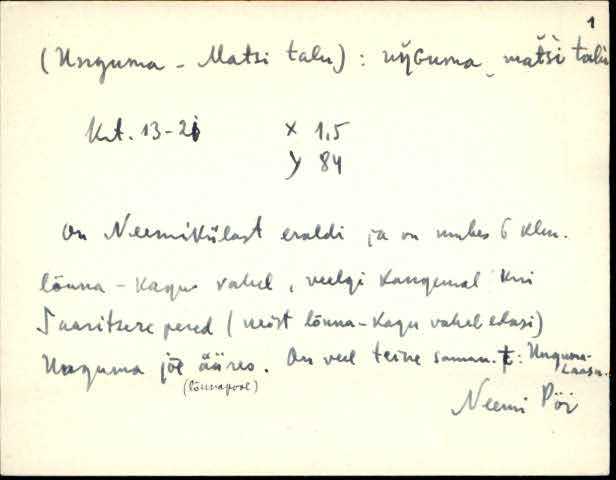 1
(Unguma - Matsi talu) : uŋGuma matśi talu
Krt. 13-2i x 1,5
y 84
On Neemikülast eraldi ja on umbes 6 klm.
lõuna - kagu vahel, veelgi kaugemal kui
Saaritsere pered (neist lõuna-kagu vahel edasi)
Unguma jõe ääres. On veel teine saman. t: Unguma-
Laasu.
(lõunapool)
Neemi Pöi